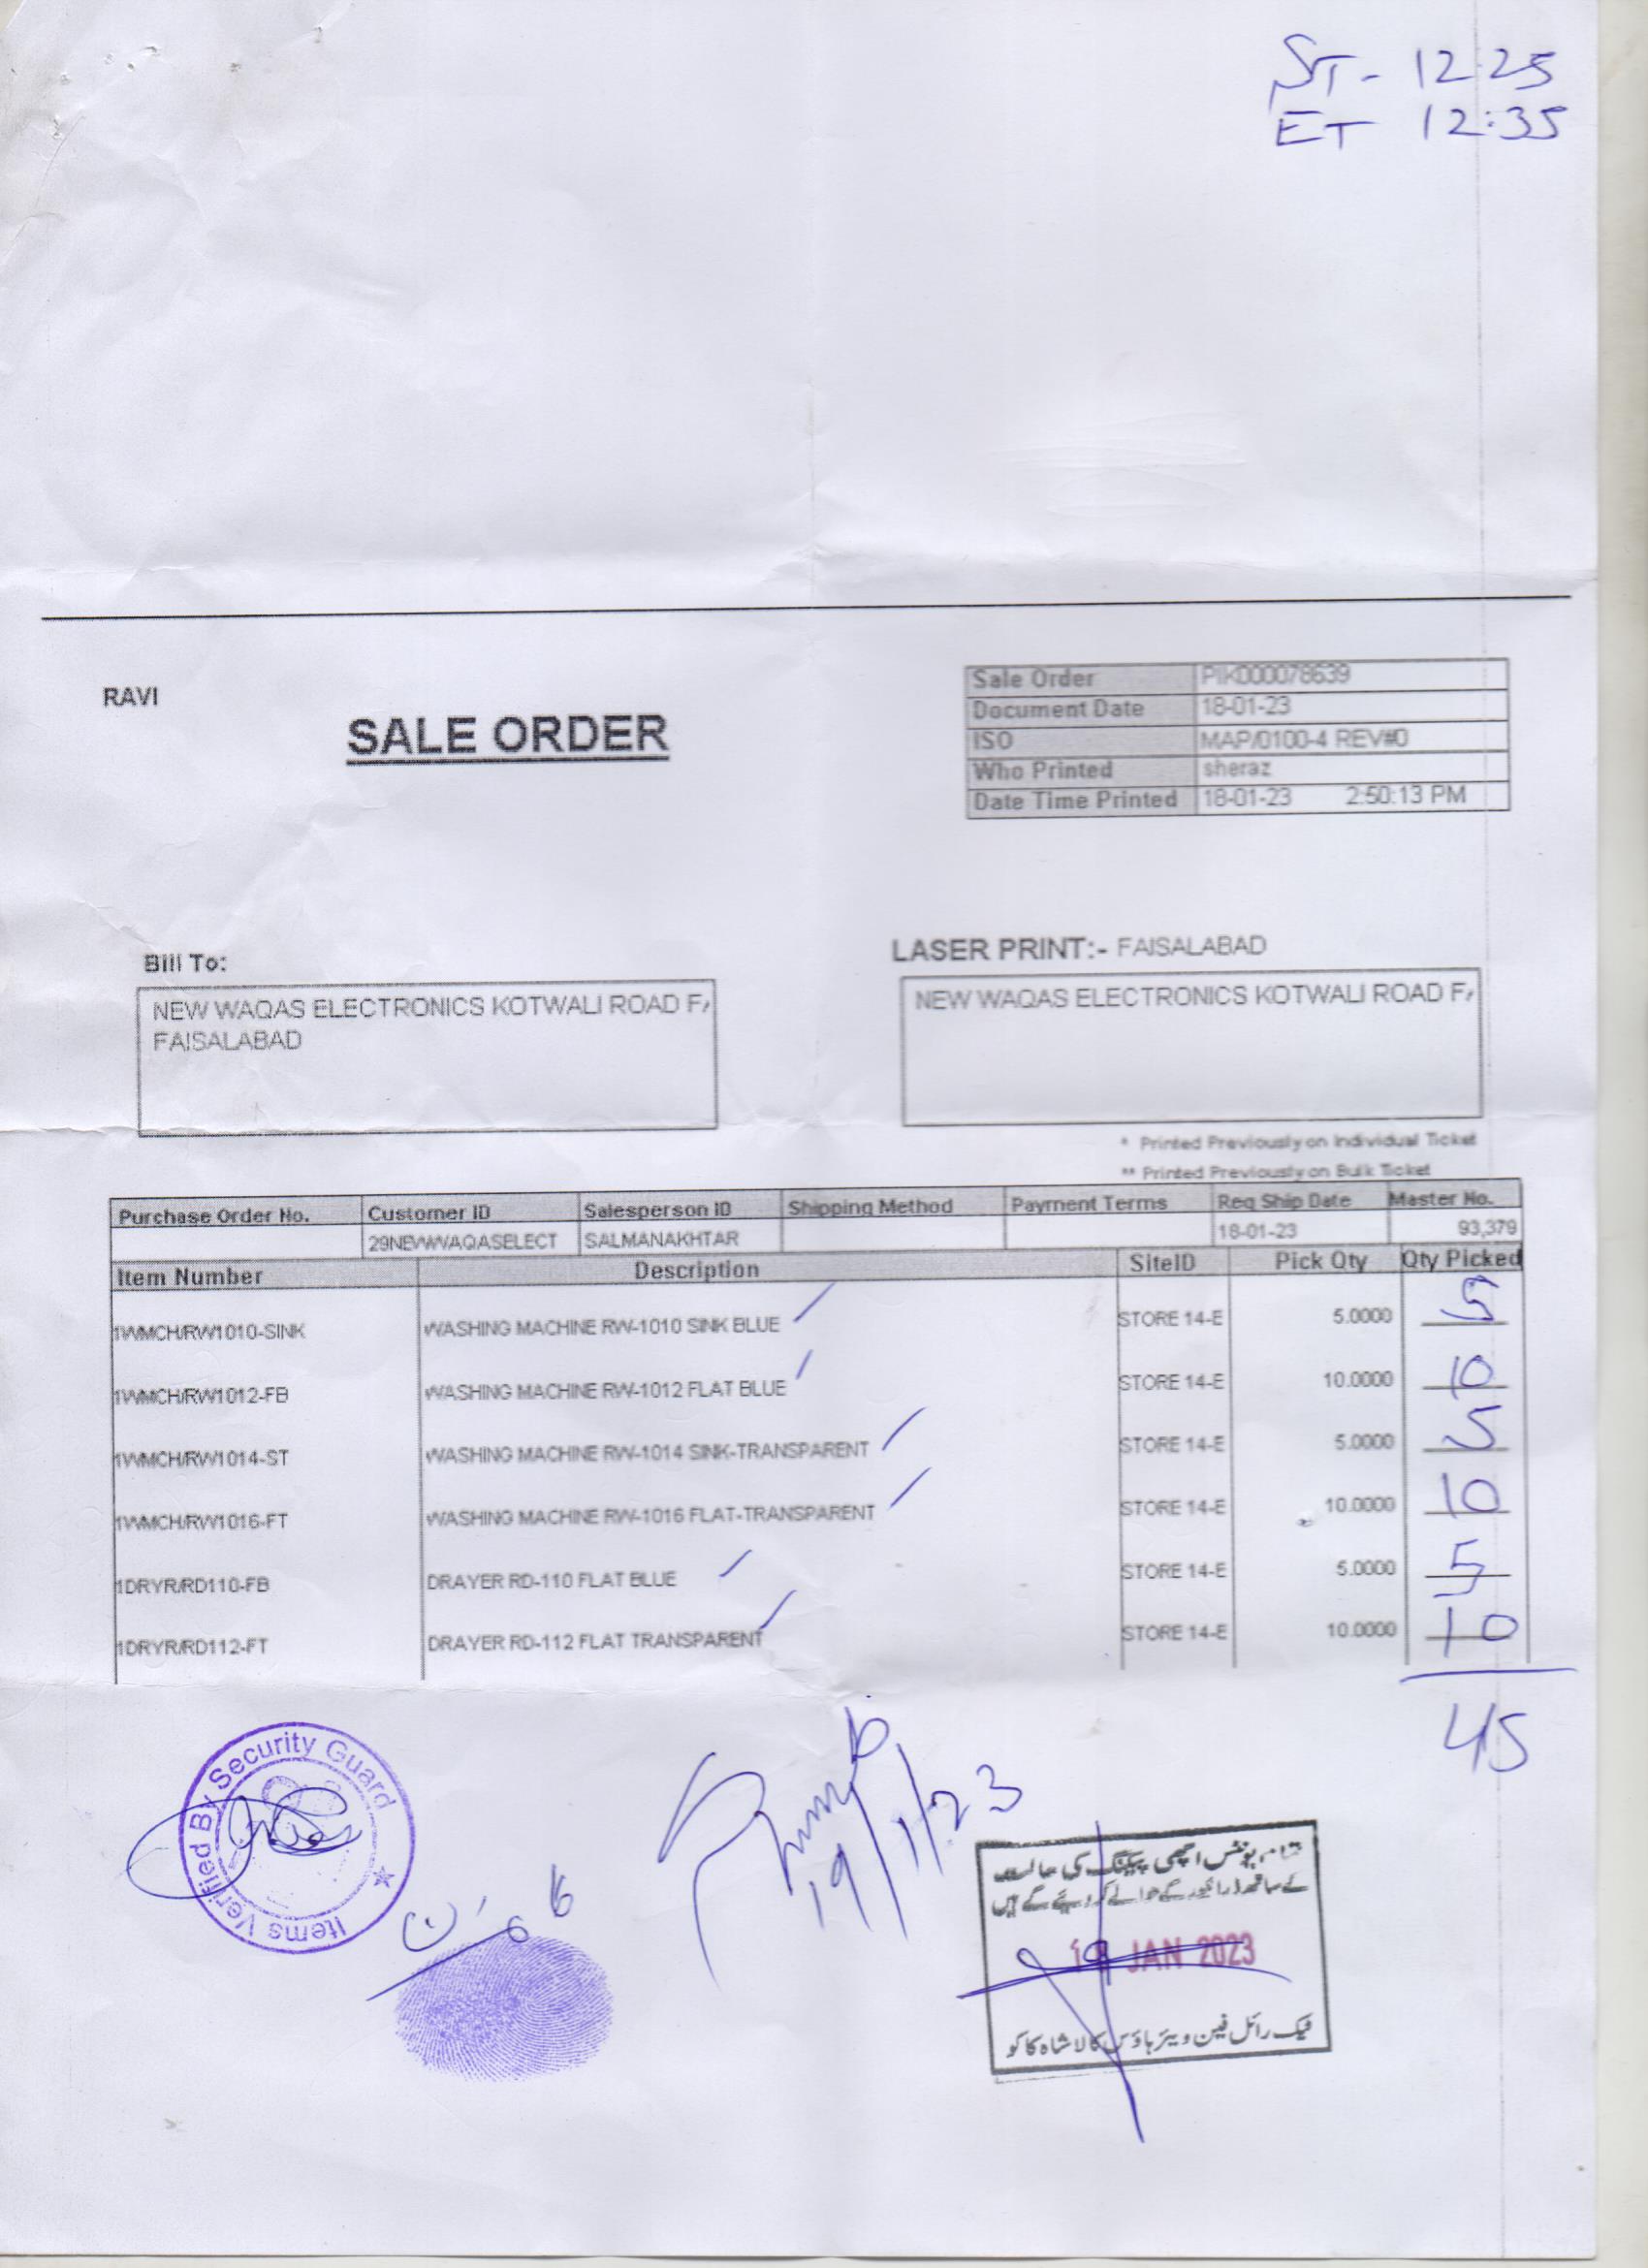 ST - 12:25
ET 12:35
RAVI
SALE ORDER
Sale Order PIK000078639
Document Date 18-01-23
ISO MAP/0100-4 REV#0
Who Printed sheraz
Date Time Printed 18-01-23 2:50:13 PM
Bill To:
NEW WAQAS ELECTRONICS KOTWALI ROAD FA
FAISALABAD
LASER PRINT:- FAISALABAD
NEW WAQAS ELECTRONICS KOTWALI ROAD FA
* Printed Previously on Individual Ticket
** Printed Previously on Bulk Ticket
Purchase Order No. Customer ID Salesperson ID Shipping Method Payment Terms Req Ship Date Master No.
29NEWWAQASELECT SALMANAKHTAR 18-01-23 93,379
Item Number Description SiteID Pick Qty Qty Picked
1WMCH/RW1010-SINK WASHING MACHINE RW-1010 SINK BLUE STORE 14-E 5.0000 5
1WMCH/RW1012-FB WASHING MACHINE RW-1012 FLAT BLUE STORE 14-E 10.0000 10
1WMCH/RW1014-ST WASHING MACHINE RW-1014 SINK-TRANSPARENT STORE 14-E 5.0000 5
1WMCH/RW1016-FT WASHING MACHINE RW-1016 FLAT-TRANSPARENT STORE 14-E 10.0000 10
1DRYR/RD110-FB DRAYER RD-110 FLAT BLUE STORE 14-E 5.0000 5
1DRYR/RD112-FT DRAYER RD-112 FLAT TRANSPARENT STORE 14-E 10.0000 10
45
Items Verified By Security Guard
19/1/23
تمام یونٹس اچھی پیکنگ کی حالت
کے ساتھ ڈرائیور کے حوالے کر دیئے گے ہیں
19 JAN 2023
فیک رائل فین ویئر ہاؤس کالا شاہ کاکو